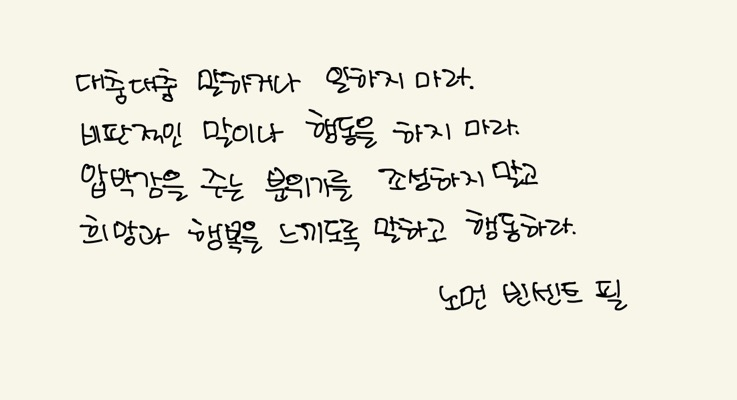 대충대충 말하거나 일하지 마라.
비판적인 말이나 행동을 하지 마라.
압박감을 주는 분위기를 조성하지 말고
희망과 행복을 느끼도록 말하고 행동하라.
노먼 빈센트 필